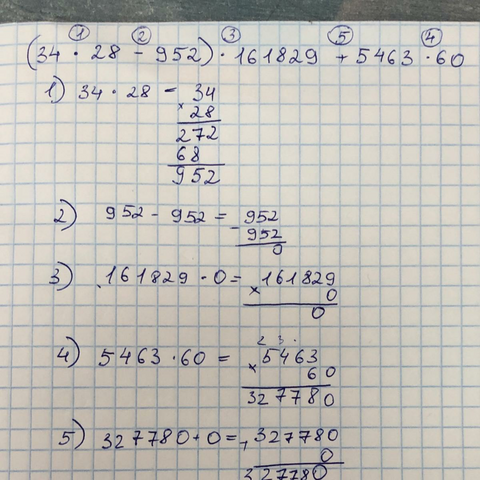 1 2 3 5 4
(34 · 28 - 952) · 161829 + 5463 · 60
1) 34 · 28 = 34
× 28
272
68
952
2) 952 - 952 = 952
- 952
0
3) 161829 · 0 = 161829
× 0
0
2 3
4) 5463 · 60 = 5463
× 60
327780
5) 327780 + 0 = 327780
+ 0
327780